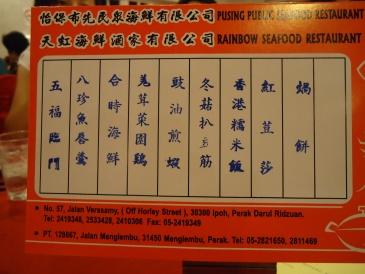 怡保市先民眾海鮮有限公司 PUSING PUBLIC SEAFOOD RESTAURANT
天虹海鮮酒家有限公司 RAINBOW SEAFOOD RESTAURANT
五福臨門
八珍魚唇羹
合時海鮮
羌茸菜園鷄
豉油煎蝦
冬菇扒豆筋
香港糯米飯
紅荳莎
焗餅
No. 57, Jalan Verasamy, ( Off Horley Street ), 30300 Ipoh, Perak Darul Ridzuan.
Tel: 2419348, 2533428, 2410306 Fax: 05-2419349
PT. 128667, Jalan Menglembu, 31450 Menglembu, Perak. Tel: 05-2821650, 2811469